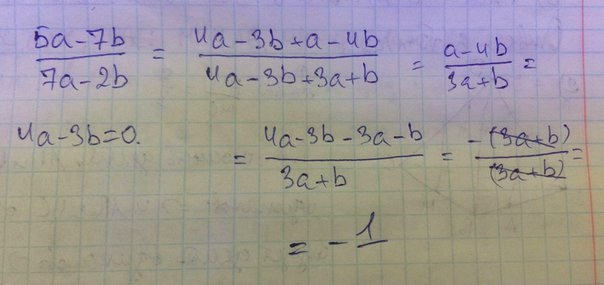 (5a-7b)/(7a-2b) = (4a-3b+a-4b)/(4a-3b+3a+b) = (a-4b)/(3a+b) =
4a-3b=0. = (4a-3b-3a-b)/(3a+b) = (-(3a+b))/((3a+b)) =
= -1